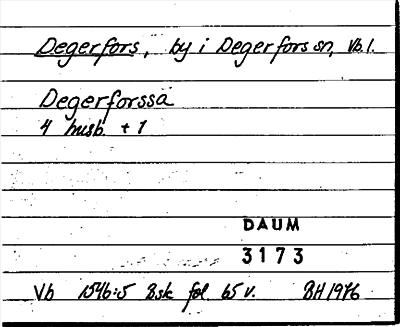 Degerfors, by i Degerfors sn, Vb l.
Degerforssa
4 husb. + 1
DAUM
3173
Vb 1546:5 Bsk fol 65 v. BH 1976